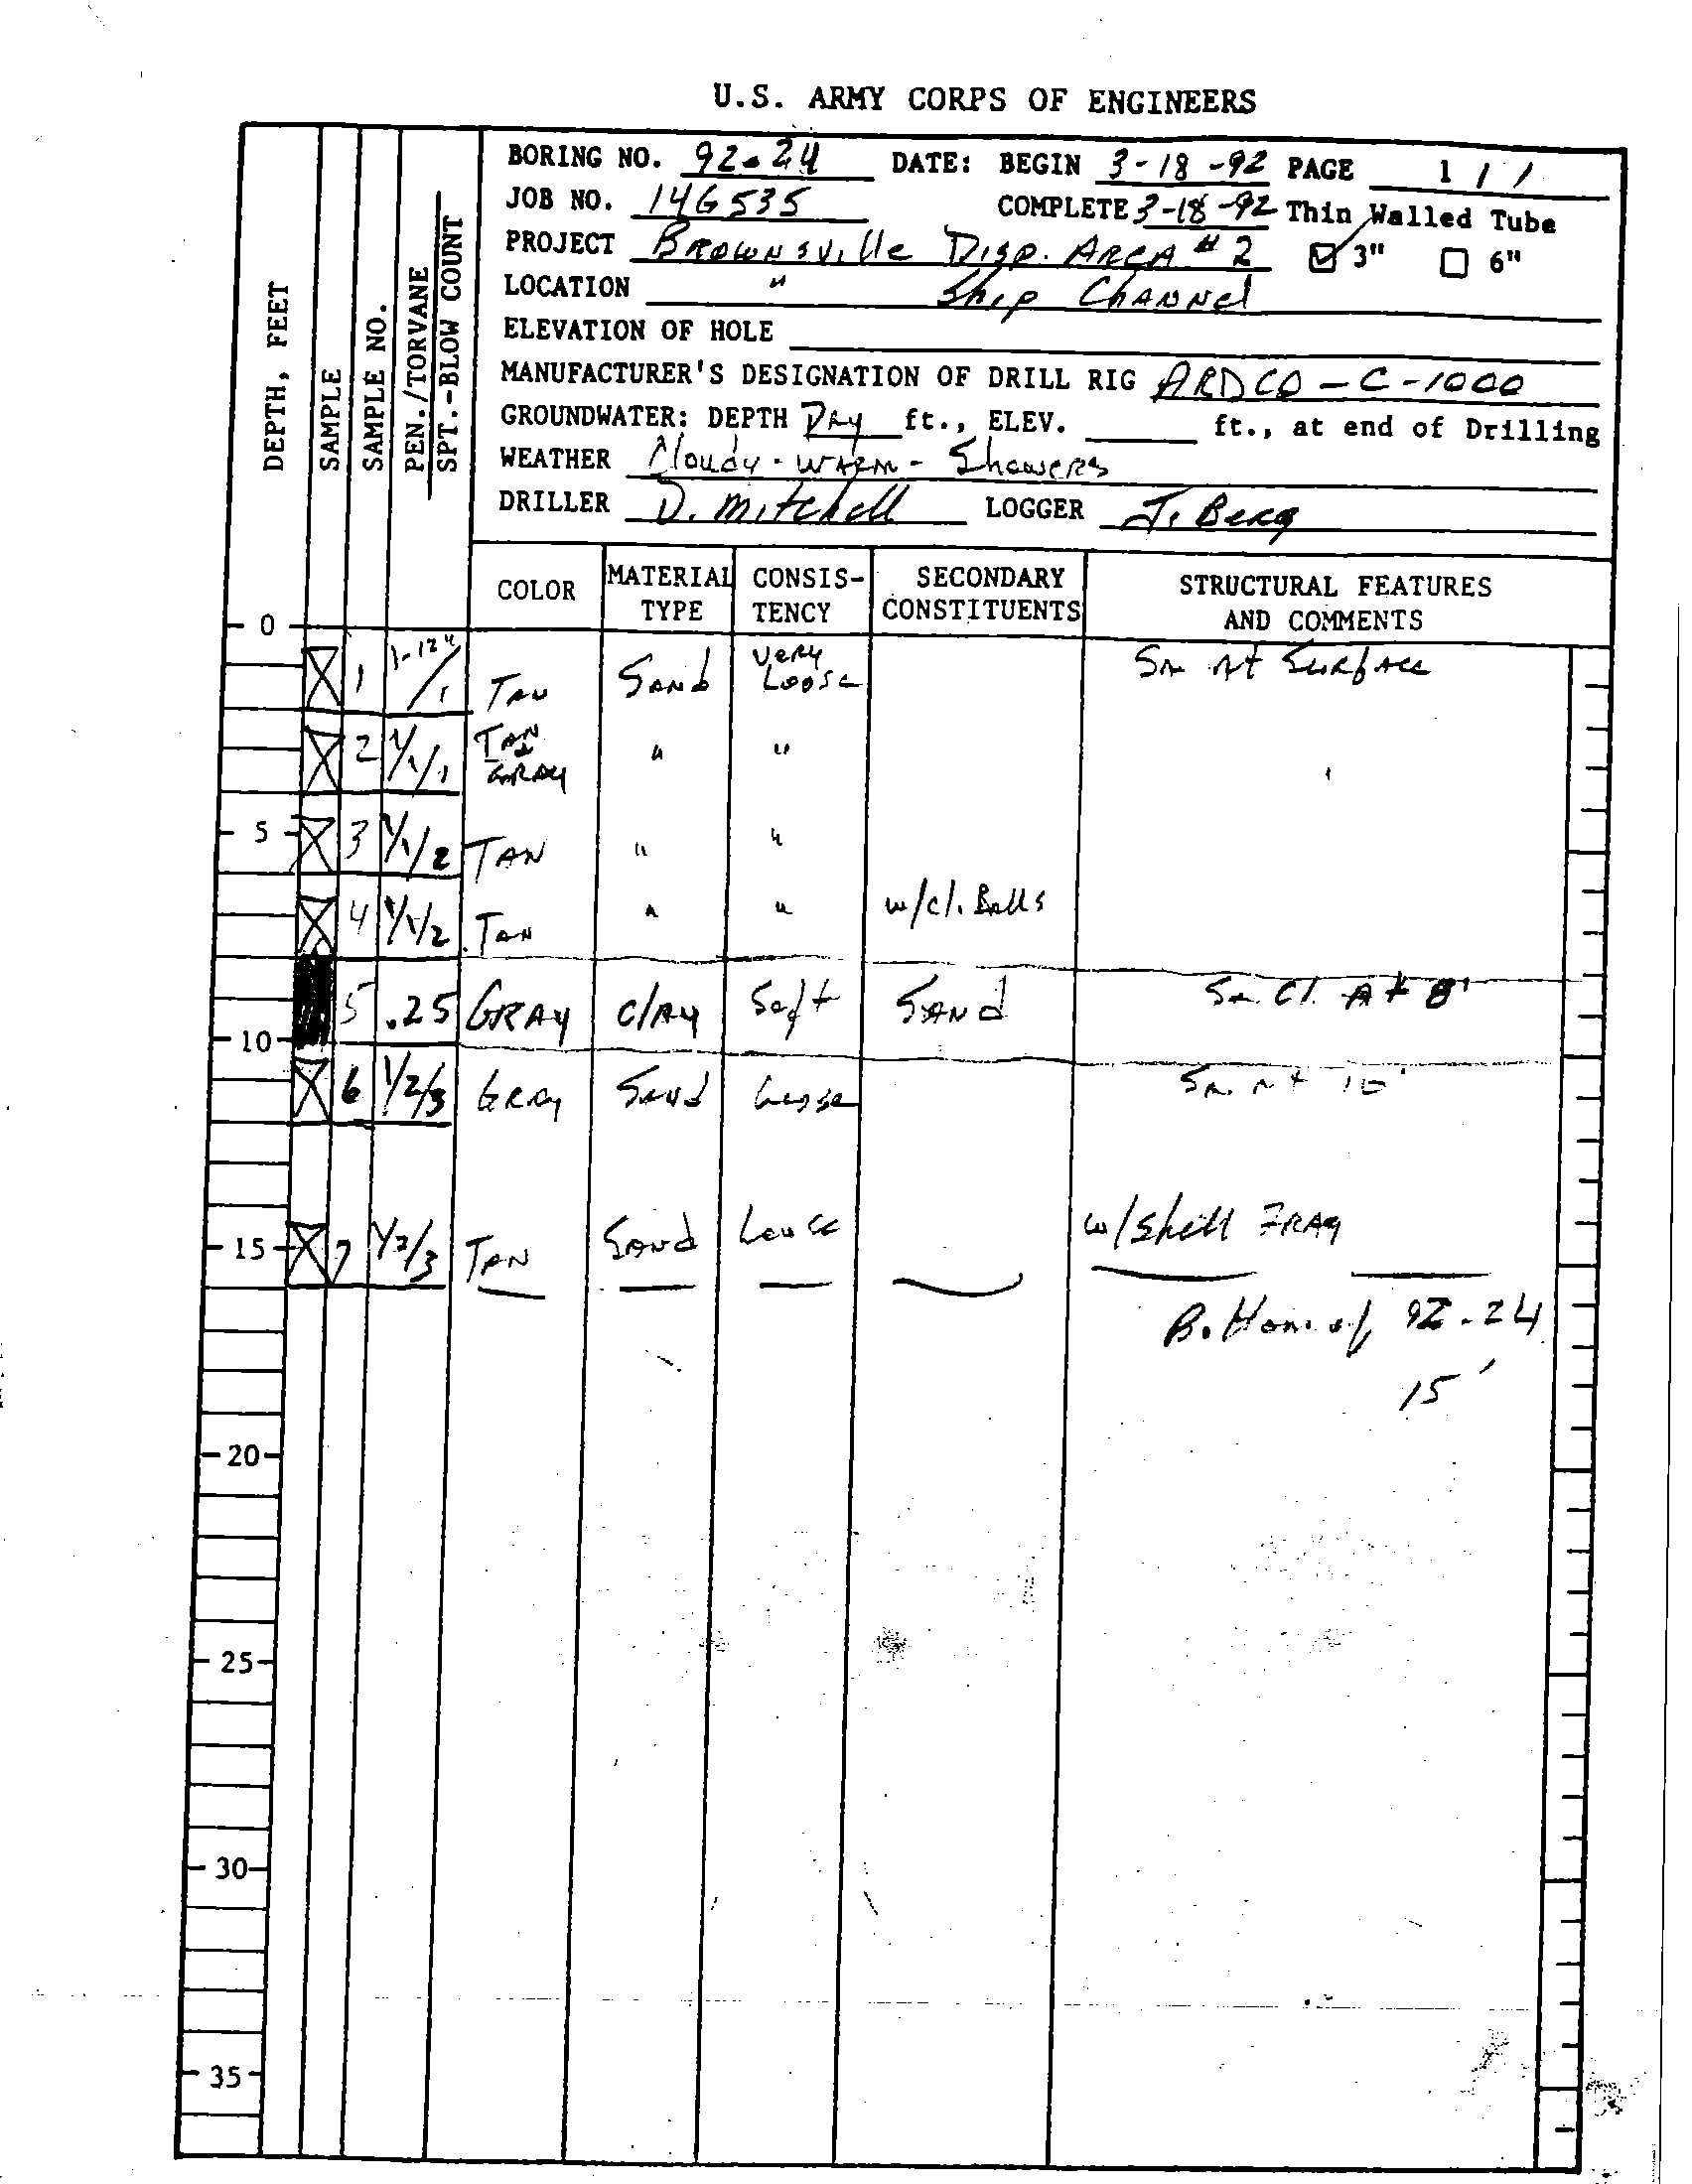 U.S. ARMY CORPS OF ENGINEERS
BORING NO. 92-24 DATE: BEGIN 3-18-92 PAGE 1 / 1
JOB NO. 14G535 COMPLETE 3-18-92 Thin Walled Tube
PROJECT BROWNSVILLE DISP. AREA #2 ☑ 3" ☐ 6"
LOCATION " Ship Channel
ELEVATION OF HOLE
MANUFACTURER'S DESIGNATION OF DRILL RIG ARDCO-C-1000
GROUNDWATER: DEPTH DRY ft., ELEV. ft., at end of Drilling
WEATHER Cloudy - WARM - Showers
DRILLER D. Mitchell LOGGER J. Berg
DEPTH, FEET
SAMPLE
SAMPLE NO.
PEN./TORVANE
SPT.-BLOW COUNT
COLOR MATERIAL TYPE CONSIS-TENCY SECONDARY CONSTITUENTS STRUCTURAL FEATURES AND COMMENTS
0
1 1-12"/1 TAN SAND Very Loose SA At Surface
2 1/1/1 TAN & GRAY " "
5 3 1/1/2 TAN " "
4 1/1/2 TAN " " w/cl. Balls
5 .25 GRAY CLAY Soft SAND SA. Cl. At 8'
10
6 1/2/3 GRAY SAND Loose SA At 10'
15 7 1/2/3 TAN SAND Loose w/Shell FRAG
Bottom of 92-24
15'
20
25
30
35